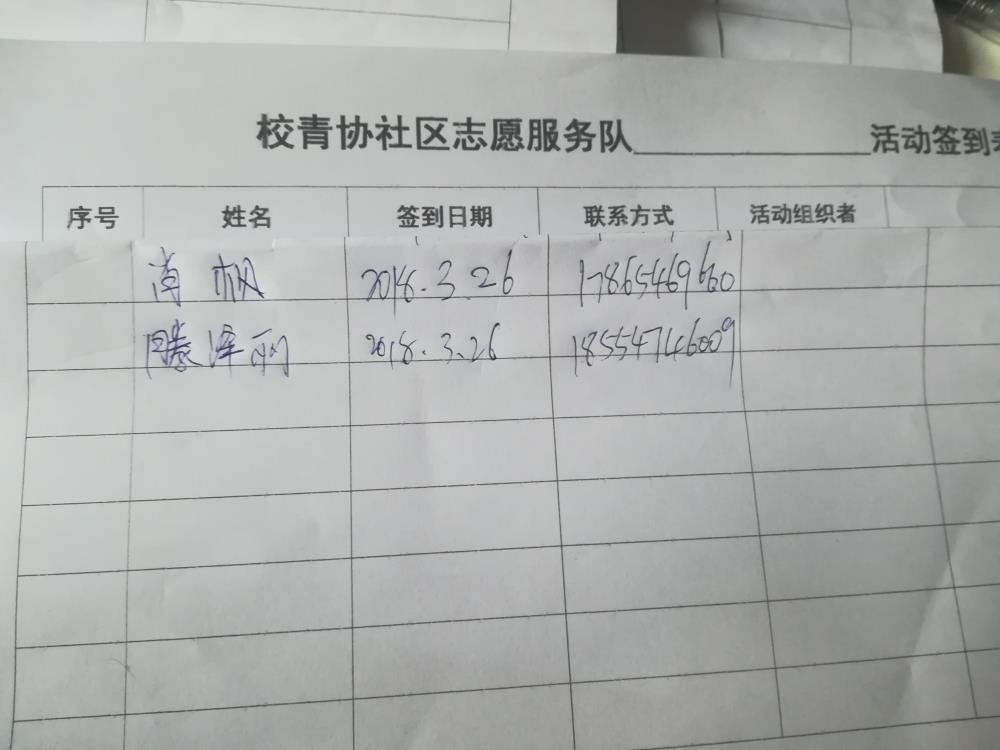 校青协社区志愿服务队____________活动签到
序号 姓名 签到日期 联系方式 活动组织者
肖枫 2018.3.26 17865469660
滕泽丽 2018.3.26 18554746009